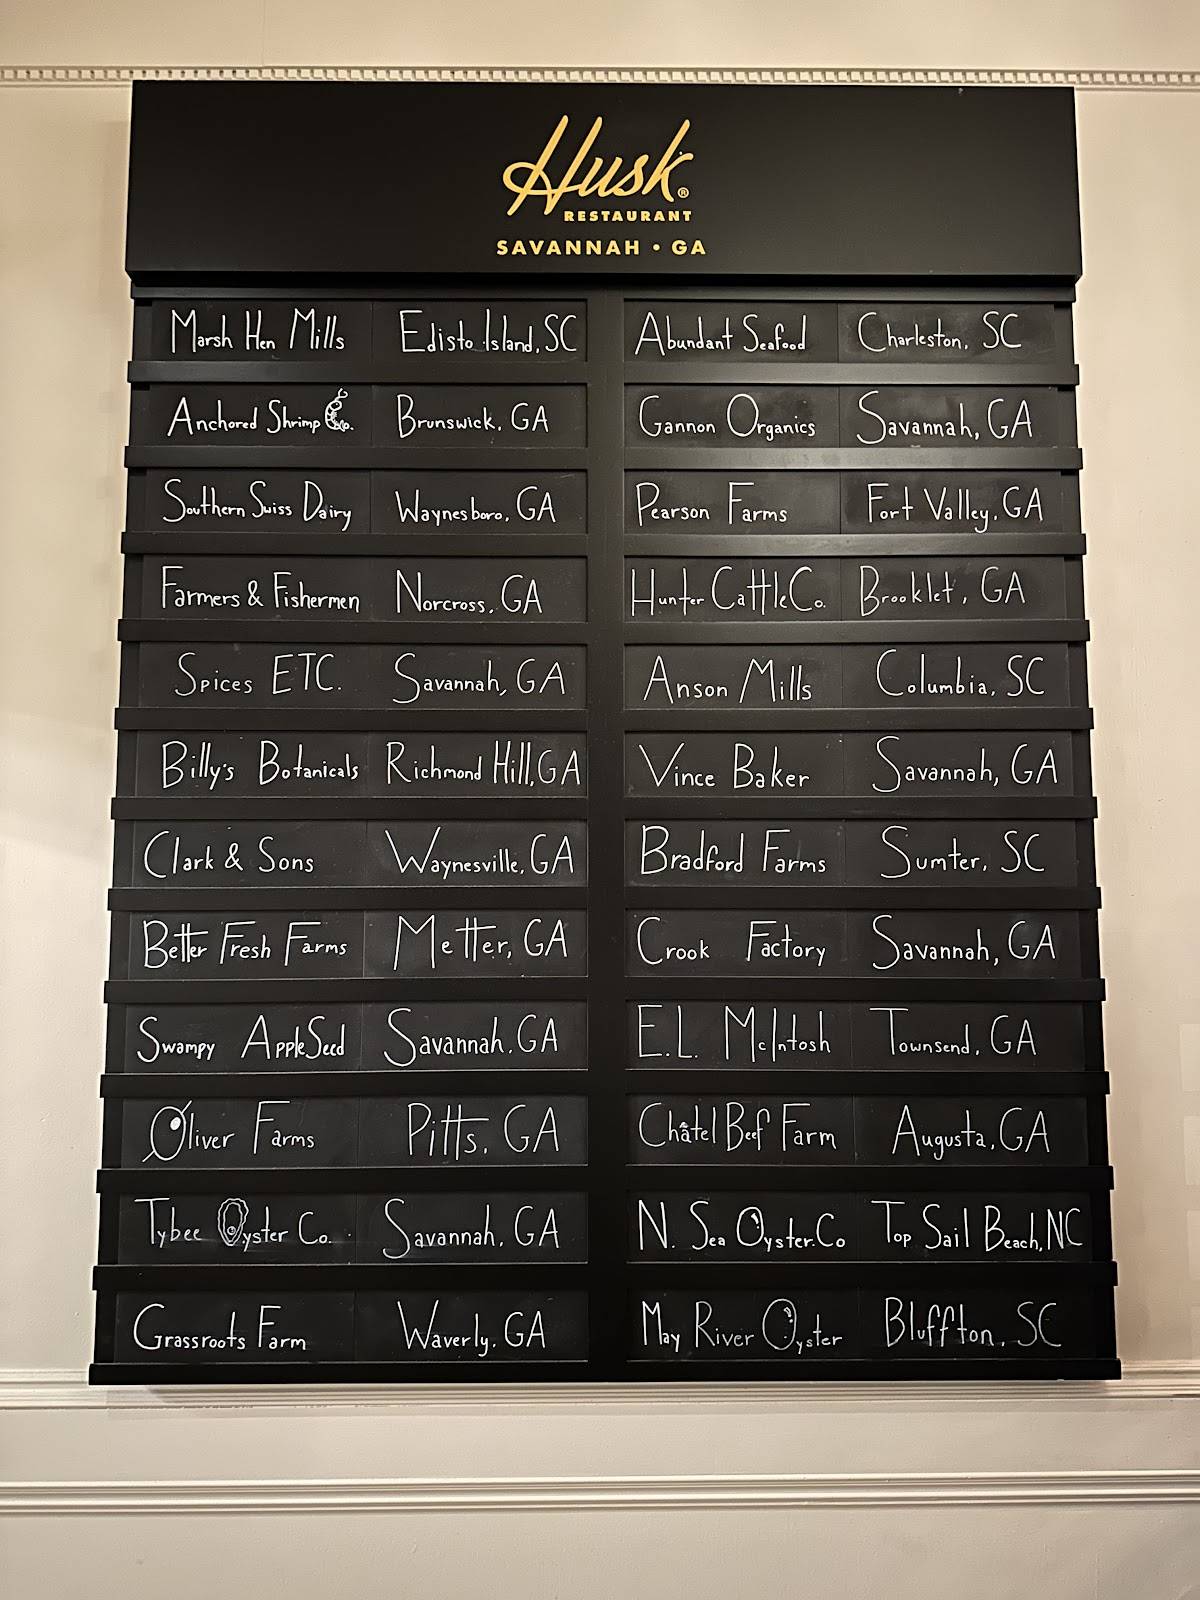 Husk®
RESTAURANT
SAVANNAH • GA
Marsh Hen Mills Edisto Island, SC
Anchored Shrimp Co. Brunswick, GA
Southern Swiss Dairy Waynesboro, GA
Farmers & Fishermen Norcross, GA
Spices ETC. Savannah, GA
Billy's Botanicals Richmond Hill, GA
Clark & Sons Waynesville, GA
Better Fresh Farms Metter, GA
Swampy AppleSeed Savannah, GA
Oliver Farms Pitts, GA
Tybee Oyster Co. Savannah, GA
Grassroots Farm Waverly, GA
Abundant Seafood Charleston, SC
Gannon Organics Savannah, GA
Pearson Farms Fort Valley, GA
Hunter Cattle Co. Brooklet, GA
Anson Mills Columbia, SC
Vince Baker Savannah, GA
Bradford Farms Sumter, SC
Crook Factory Savannah, GA
E.L. McIntosh Townsend, GA
Châtel Beef Farm Augusta, GA
N. Sea Oyster. Co Top Sail Beach, NC
May River Oyster Bluffton, SC